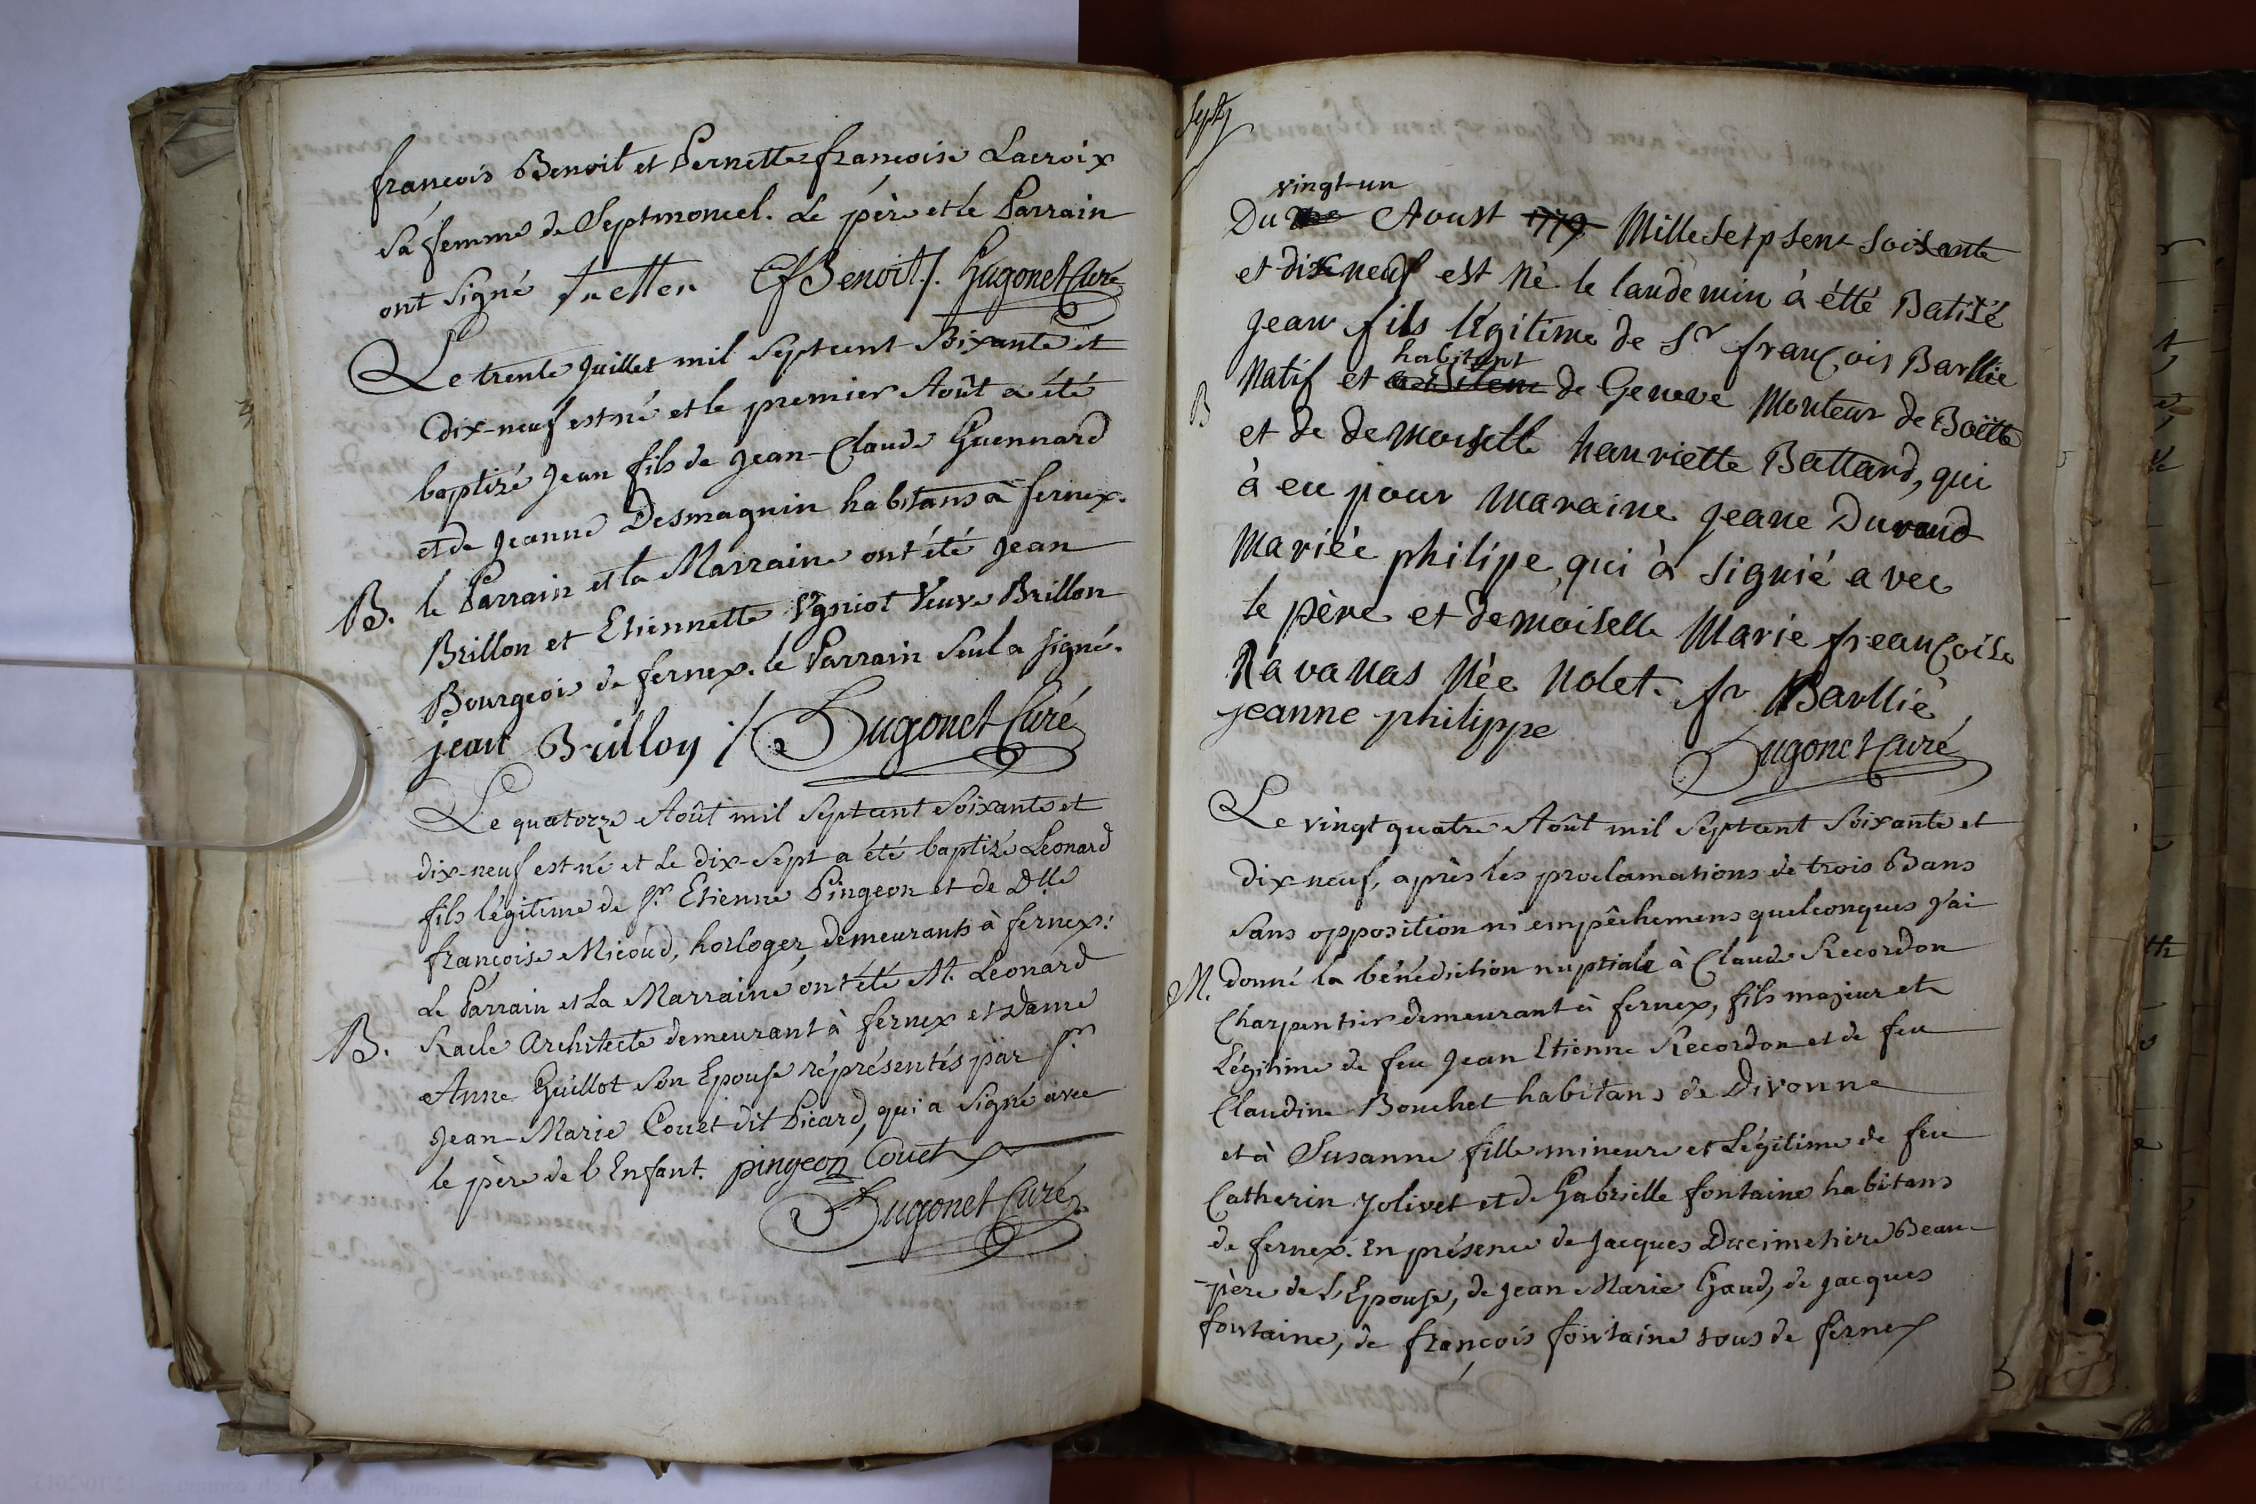 françois Benoit et Pernette françoise Lacroix
sa femme de Septmoncel. Le père et le Parrain
ont signé CfBenoit /. Hugonet Curé
Le trente Juillet mil Septcent Soixante et
dix-neuf est né et le premier Août a été
baptizé Jean fils de Jean-Claude Guennard
et de Jeanne Desmagnin habitans à fernex.
B. le Parrain et la Marraine ont été Jean
Brillon et Etiennette Veuve Brillon
Bourgeois de fernex. le Parrain seul a signé.
jean Brillon ./ Hugonet Curé
Le quatorze Août mil Septcent Soixante et
dix-neuf est né et Le dix-Sept a été baptizé Léonard
fils légitime de Sr. Etienne Pingeon et de Dlle
françoise Micoud, horloger, demeurants à fernex.
Le Parrain et La Marraine ont été M. Léonard
B. Racle Architecte demeurant à fernex et Dame
Anne Guillot son Epouse réprésentés par Sr.
Jean-Marie Couet dit Picard, qui a signé avec
le père de l'Enfant. pingeon Couet
Hugonet Curé.
Septz
vingt-un
Du Aoust 1779 Mille Setp sent soisante
et dixneuf est né le landemin à étté Batizé
Jean fils légitime de Sr françois Barllié
habitant
B Natif et de Geneve Monteur de Boëtte
et de demoiselle hanriette Battard, qui
à eu pour maraine Jeane Durand
Mariée philipe, qui à signié avec
le père et demoiselle Marie freançoise
Ravanas Née Nolet. fr Barllié
jeanne philippe
Hugonet Curé
Le vingt quatre Août mil Septcent Soixante et
Dix-neuf, après les proclamations de trois Bans
sans opposition ni empêchemens quelconques j'ai
M. donné la bénédiction nuptiale à Claude Recordon
Charpentier demeurant à fernex, fils majeur et
Légitime de feu Jean Etienne Recordon et de feu
Claudine Bouchet habitans de Divonne
et à Susanne fille mineure et Légitime de feu
Catherin Jolivet et de Gabrielle fontaine habitans
de fernex. En présence de Jacques Ducimetiere Beau-
-père de L'Epouse, de Jean Marie Gaud, de Jacques
fontaine, de françois fontaine tous de fernex